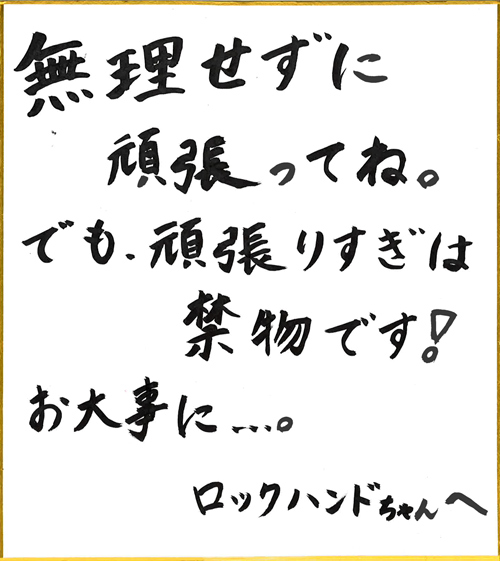 無理せずに
頑張ってね。
でも、頑張りすぎは
禁物です!
お大事に...。
ロックハンドちゃんへ